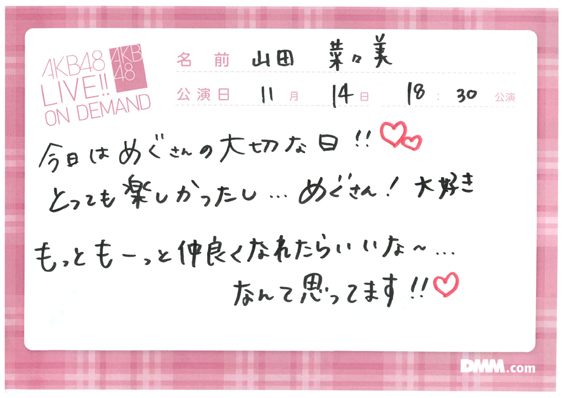 AKB48
LIVE!!
ON DEMAND
AKB
48
名前 山田 菜々美
公演日 11月 14日 18:30 公演
今日はめぐさんの大切な日!!
とっても楽しかったし…めぐさん!大好き
もっともーっと仲良くなれたらいいな〜…
なんて思ってます!!
DMM.com